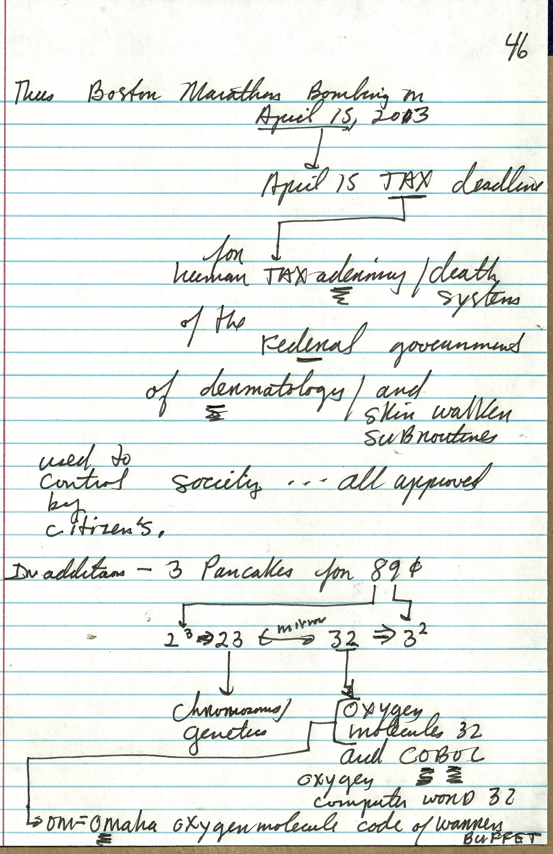 46
Thus Boston Marathon Bombing on
April 15, 2013
April 15 TAX deadline
for
human TAXadermy / death
systems
of the
Federal government
of dermatology / and
skin walker
subroutines
used to
control society ... all approved
by
citizen's.
In addition - 3 Pancakes for 89 ¢
2³ ⇒ 23 ⟷ mirror 32 ⇒ 3²
chromosomes/ oxygen
genetics molecules 32
and COBOL
oxygen
computer word 32
om=Omaha oxygen molecule code of Warren
BUFFET